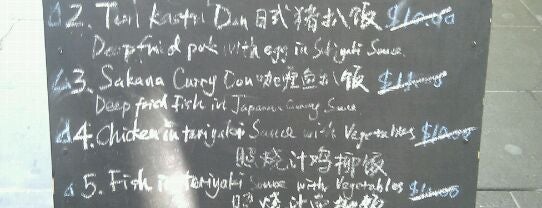 2. Tori Kastu Don 日式猪扒饭 $10.00
Deep fried pork with egg in Sukiyaki Sauce
3. Sakana Curry Don 咖喱鱼扒饭
Deep fried fish in Japanese Curry Sauce
4. Chicken in teriyaki Sauce with Vegetables $10.00
照烧汁鸡柳饭
5. Fish in teriyaki Sauce with Vegetables
照烧汁鱼柳饭